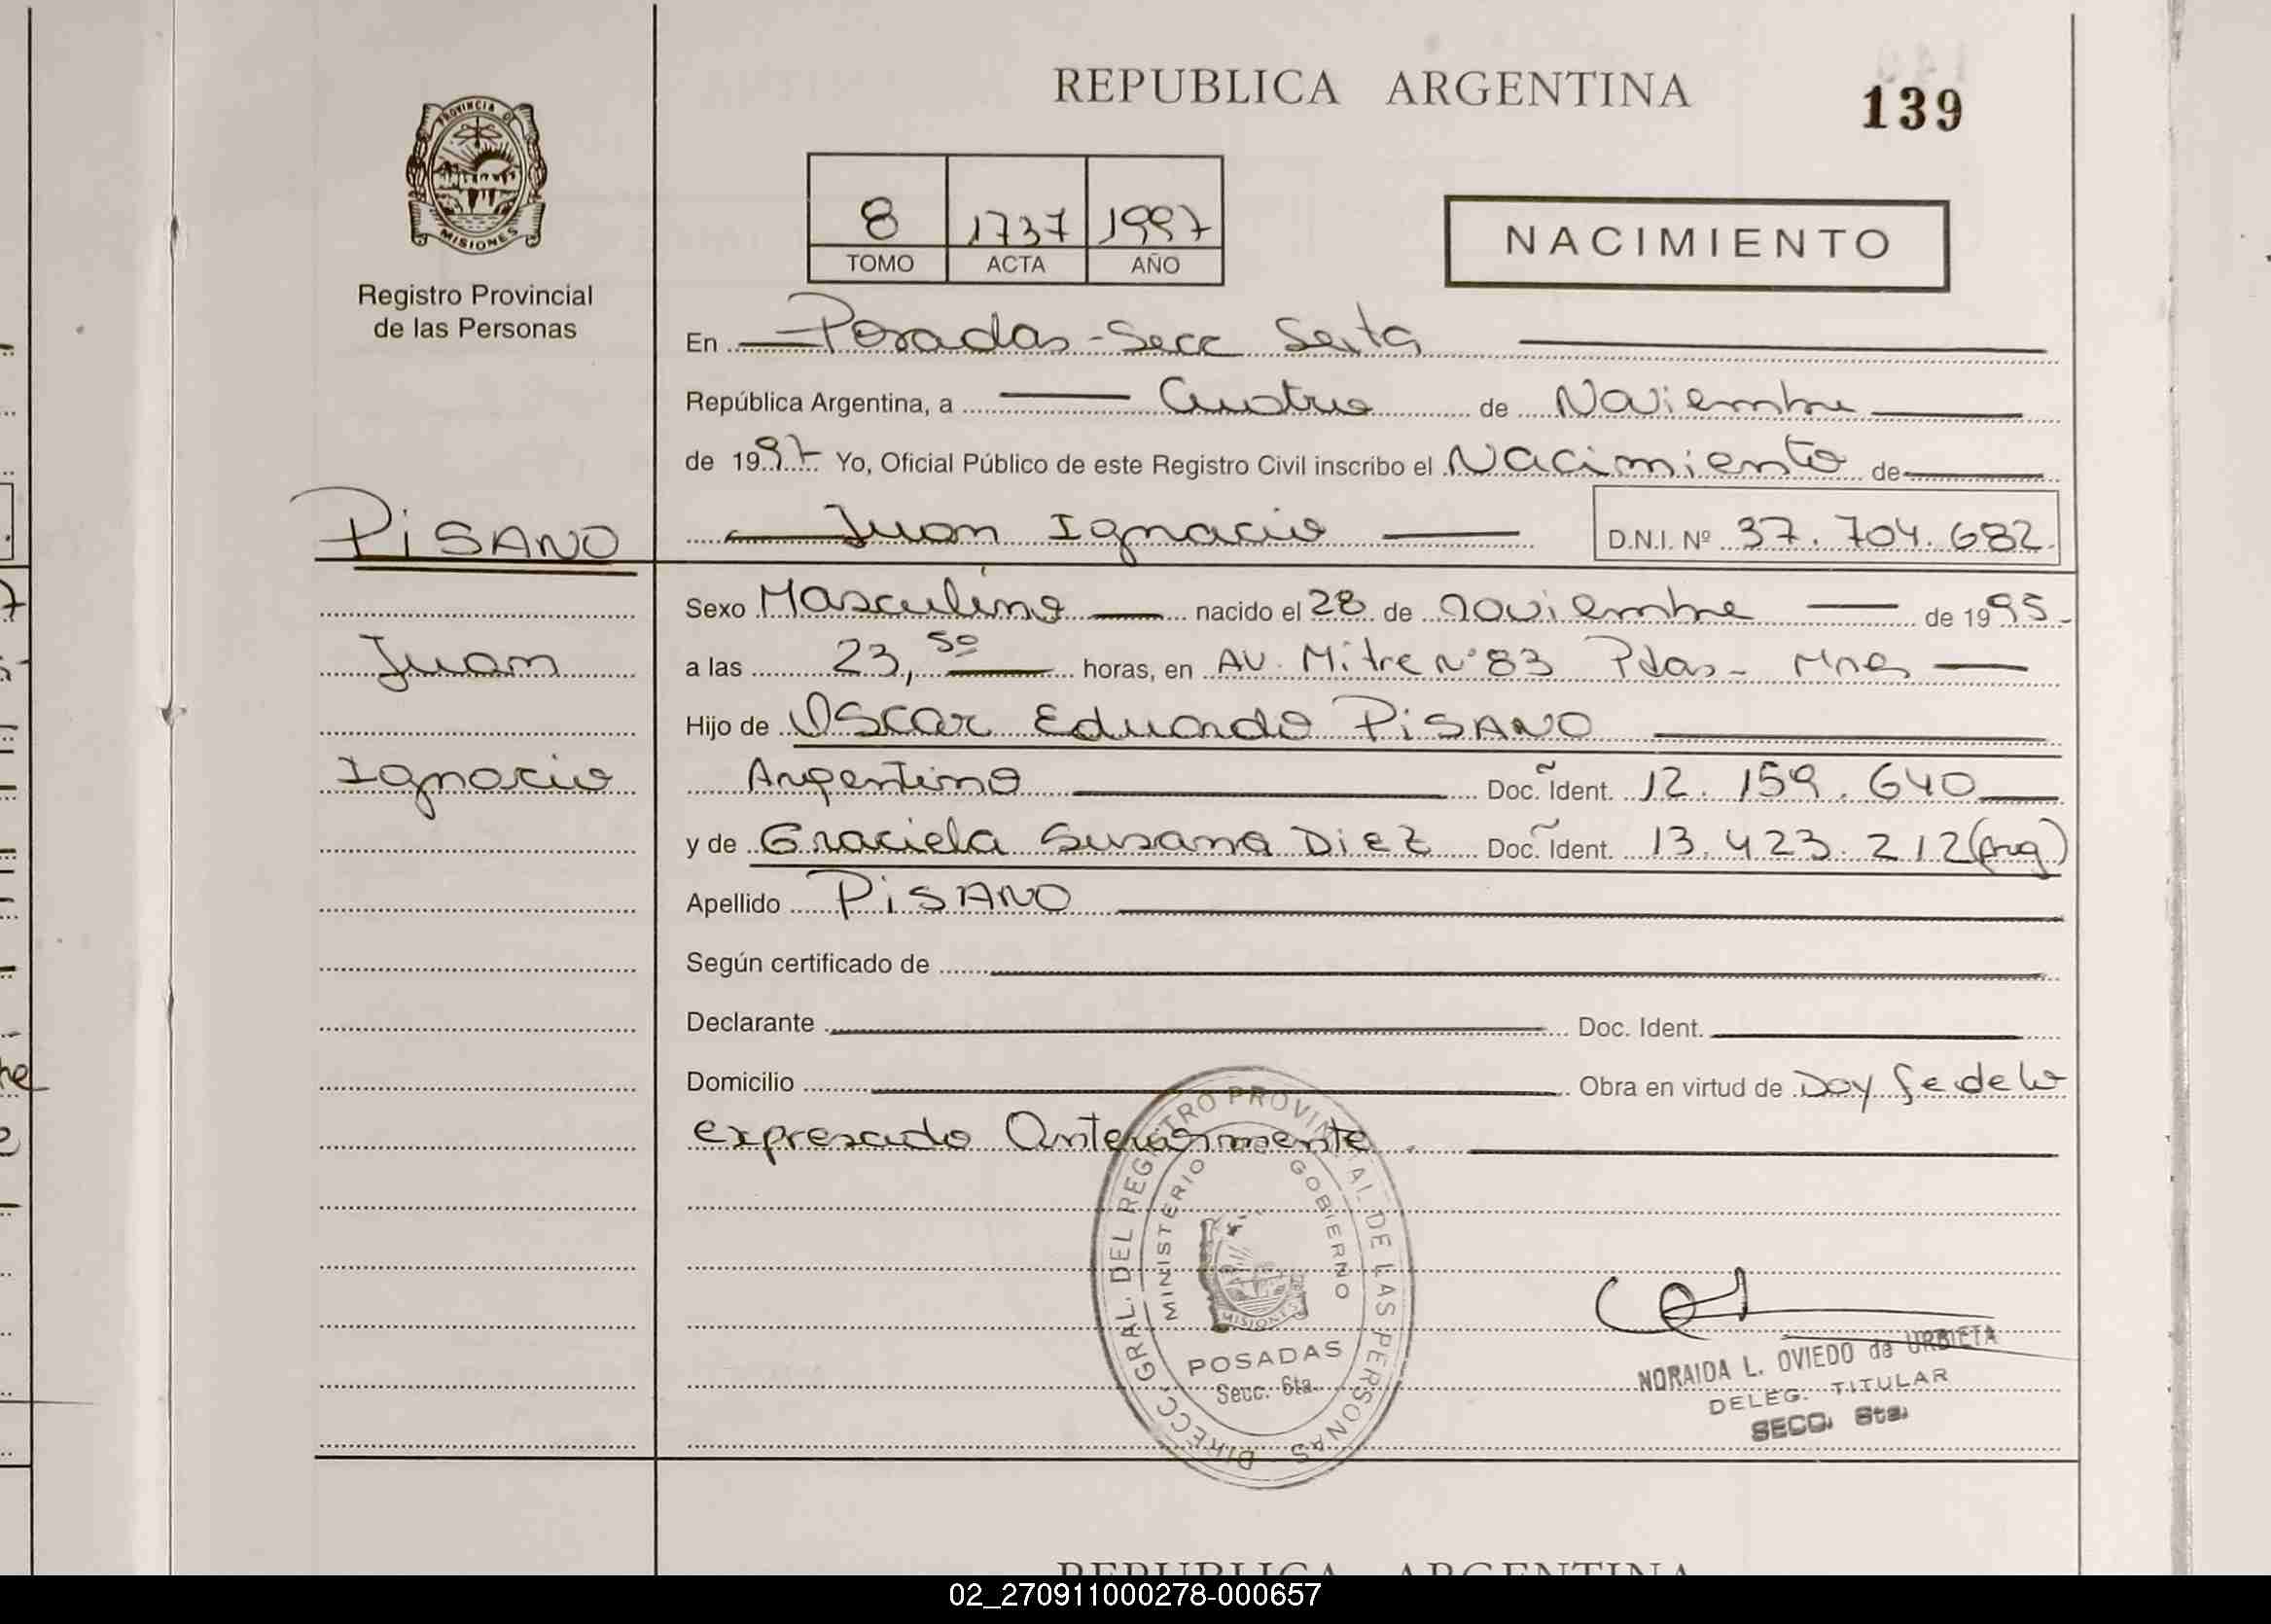 REPUBLICA ARGENTINA
139
PROVINCIA DE
MISIONES
Registro Provincial
de las Personas
8 1737 1997
TOMO ACTA AÑO
NACIMIENTO
En Posadas - Secc Sexta
República Argentina, a Cuatro de Noviembre
de 1997 Yo, Oficial Público de este Registro Civil inscribo el Nacimiento de
PISANO
Juan Ignacio D.N.I. Nº 37.704.682
Sexo Masculino nacido el 28 de noviembre de 1995
Juan
a las 23,50 horas, en AV. Mitre N° 83 Pdas - Mnes
Hijo de Oscar Eduardo PISANO
Ignacio
Argentino Doc. Ident. 12.159.640
y de Graciela Susana DIEZ Doc. Ident. 13.423.212 (Arg)
Apellido PISANO
Según certificado de
Declarante Doc. Ident.
Domicilio Obra en virtud de Doy fe de lo
expresado Anteriormente.
DIRECC. GRAL. DEL REGISTRO PROVINCIAL DE LAS PERSONAS
MINISTERIO DE GOBIERNO
MISIONES
POSADAS
Secc. 6ta.
NORAIDA L. OVIEDO de URBIETA
DELEG. TITULAR
SECC. 6ta.
REPUBLICA ARGENTINA
02_270911000278-000657